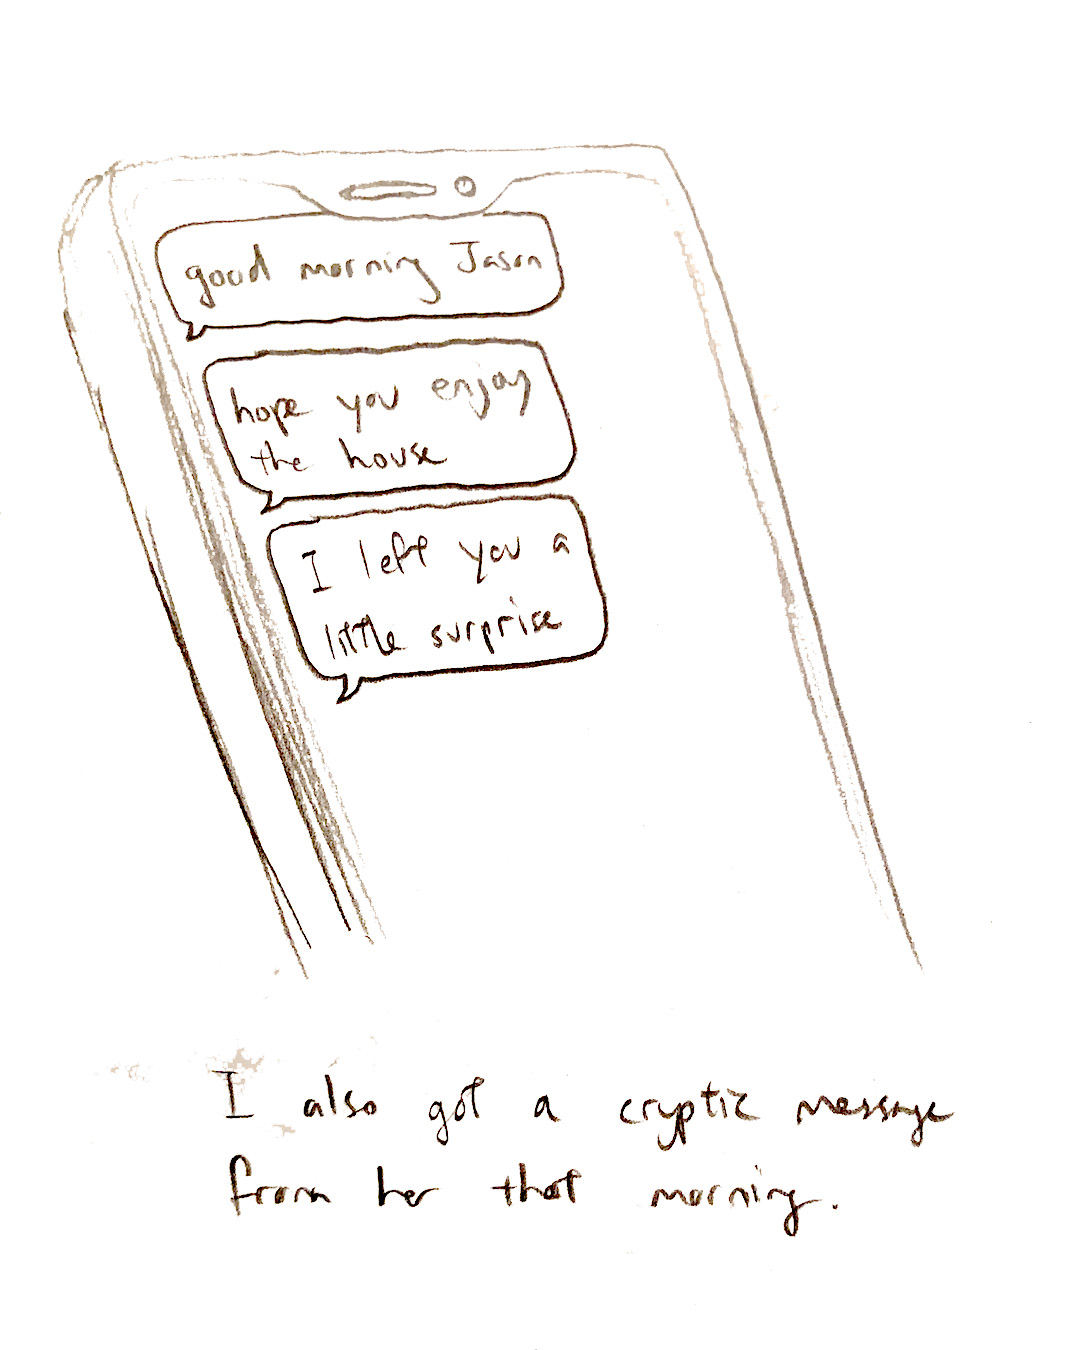 good morning Jason
hope you enjoy
the house
I left you a
little surprise
I also got a cryptic message
from her that morning.